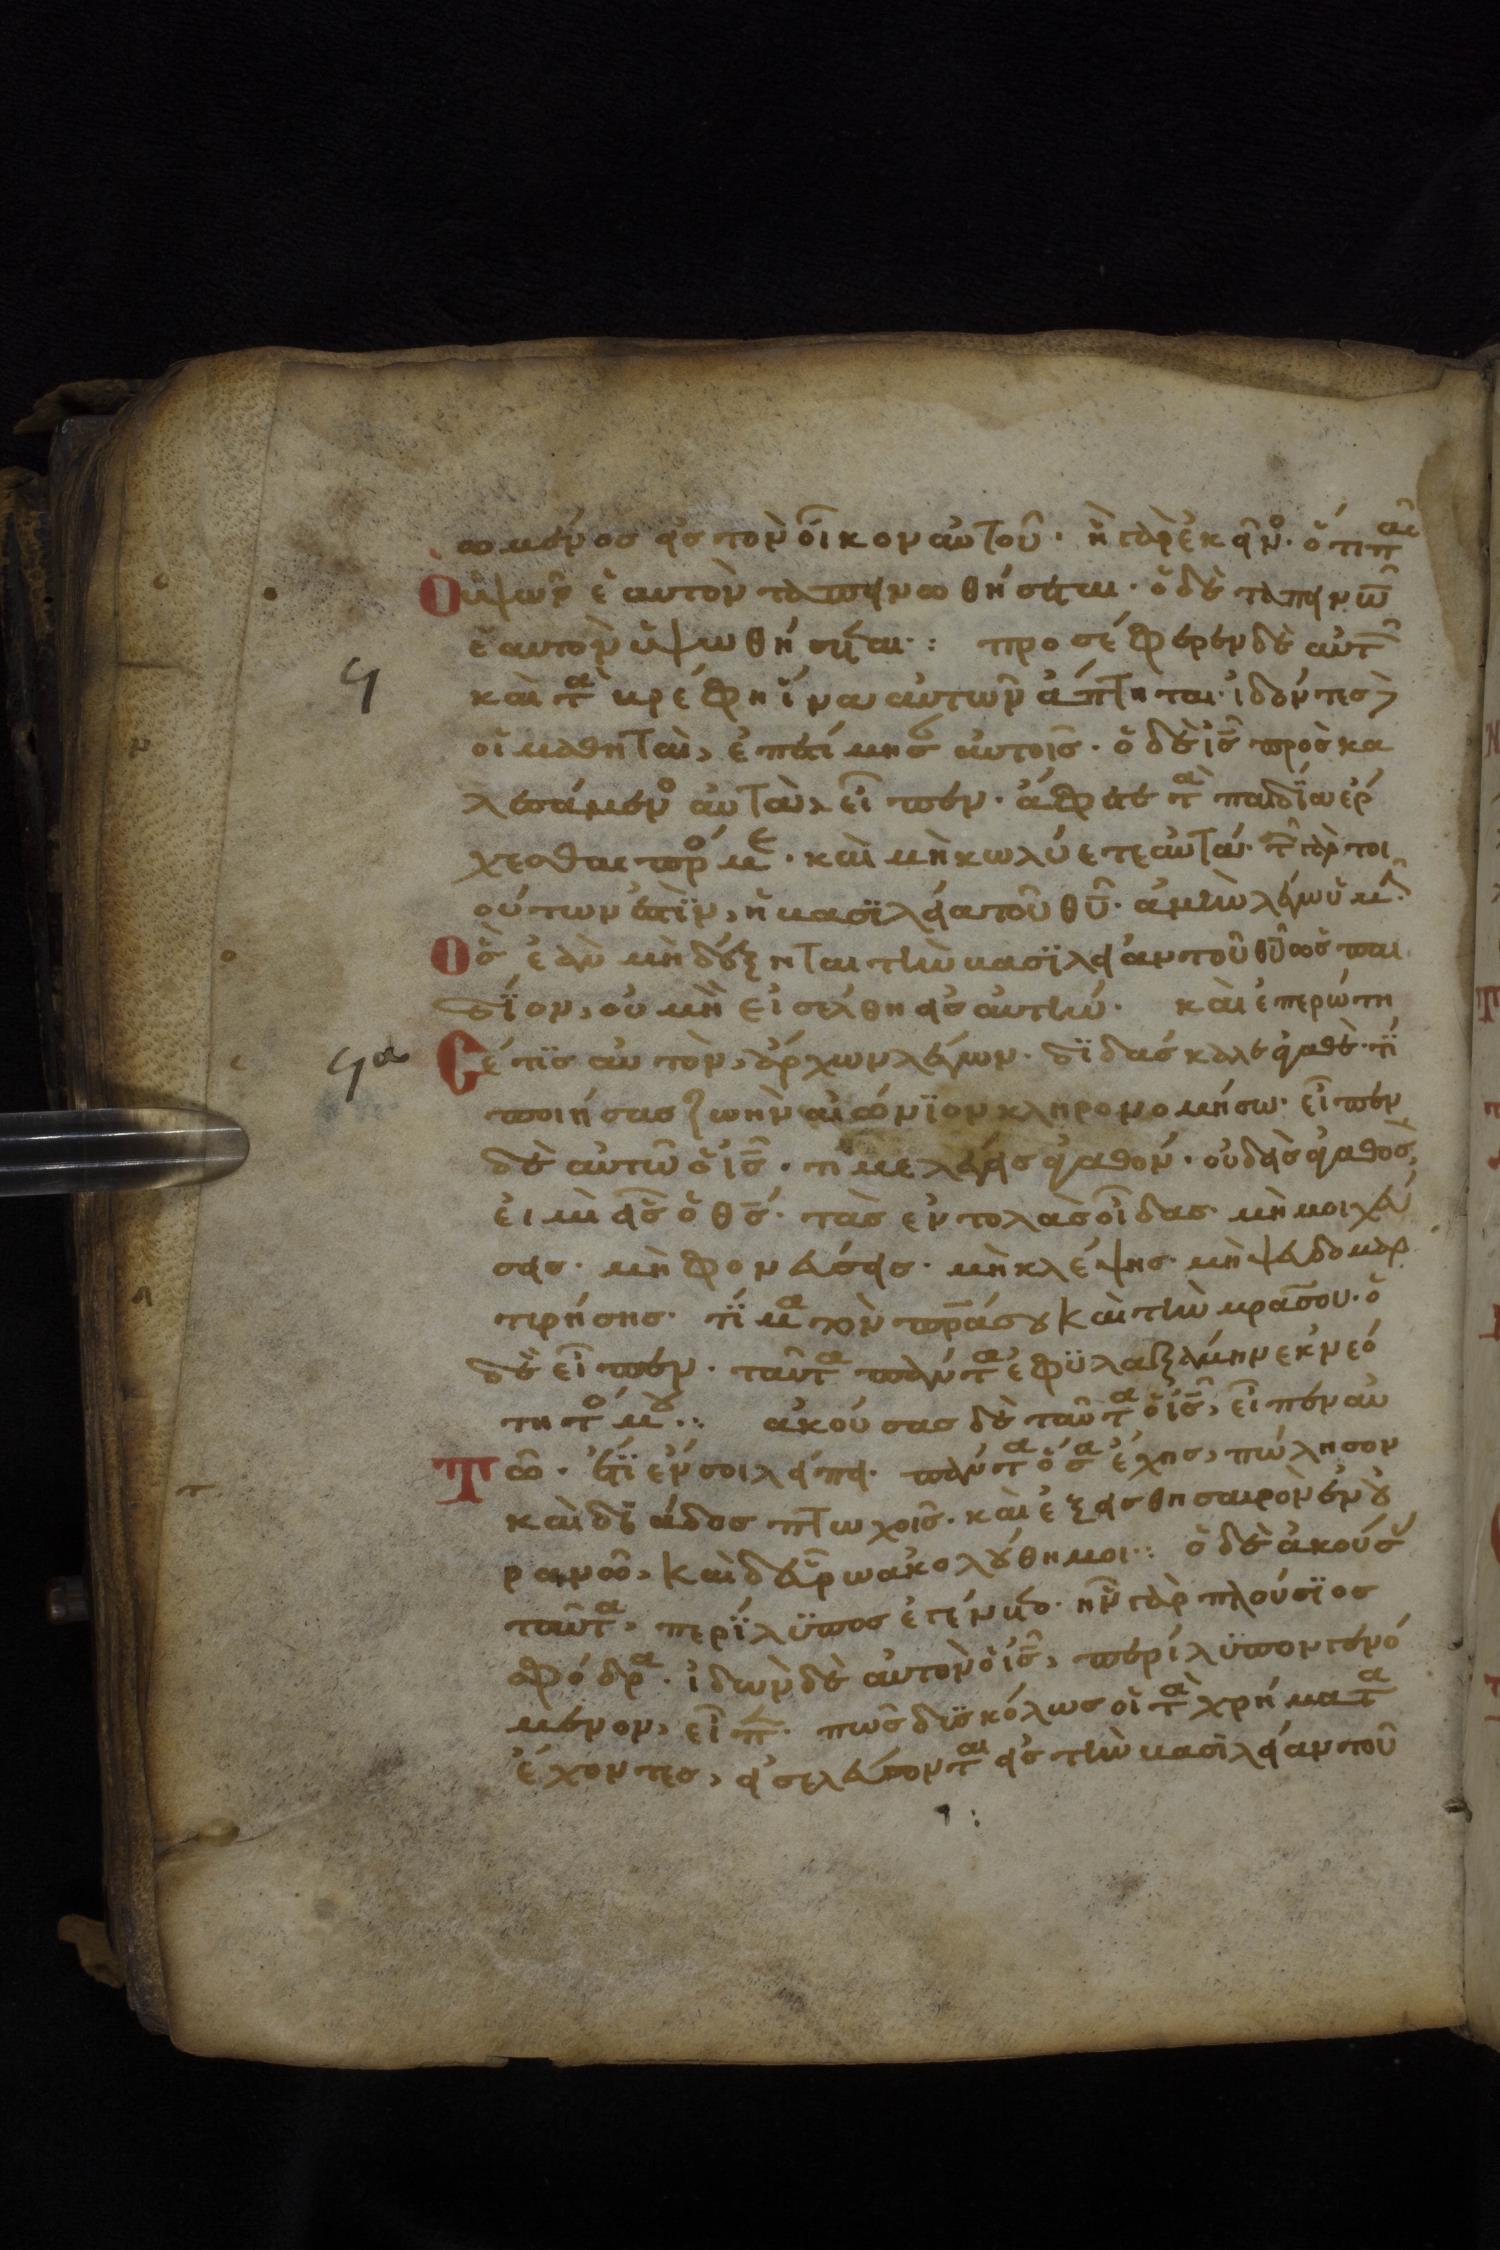 ωμένος εἰς τὸν οἶκον αὐτοῦ· ἢ γὰρ ἐκεῖνος· ὅτι πᾶς
Ὁ ὑψῶν ἑαυτὸν ταπεινωθήσεται· ὁ δὲ ταπεινῶν
ἑαυτὸν ὑψωθήσεται·: προσέφερεν δὲ αὐτῶ
Ϟ καὶ τὰ βρέφη ἵνα αὐτῶν ἅπτηται· ἰδόντες δὲ
οἱ μαθηταὶ, ἐπετίμησαν αὐτοῖς· ὁ δὲ ἰς̅ προσκα
λεσάμενος αὐτὰ, εἶπεν· ἄφετε τὰ παιδία ἔρ
χεσθαι πρός με· καὶ μὴ κωλύετε αὐτά· τῶν γὰρ τοι
ούτων ἐστὶν, ἡ βασϊλεία τοῦ θυ̅· ἀμὴν λέγω ὑμῖν·
Ὃς ἐὰν μὴ δέξηται τὴν βασϊλείαν τοῦ θυ̅ ὡς παι
δΐον, οὐ μὴ εἰσέλθη εἰς αὐτήν· καὶ ἐπερώτη
Ϟα Σέ τϊς αὐτὸν, ἄρχων λέγων· δϊδάσκαλε ἀγαθὲ· τΐ
ποιήσας ζωὴν αἰώνϊον κληρονομήσω· εἶπεν
δὲ αὐτῶ ὁ ἰς̅· τί με λέγεις ἀγαθόν· οὐδεὶς ἀγαθὸς,
εἰ μὴ εἷς ὁ θς̅· τὰς ἐντολὰς οἶδας· μὴ μοιχεύ
σεις· μὴ φονεύσεις· μὴ κλέψης· μὴ ψευδομαρ
τιρήσης· τΐμα τὸν πρα̅ σου καὶ τὴν μρα̅ σου· ὁ
δὲ εἶπεν· ταῦτα πάντα ἐφϋλαξάμην ἐκ νεό
τητός μου·: ἀκούσας δὲ ταῦτα ὁ ἰς̅, εἶπεν αὐ
Τῶ· ἔτϊ ἕν σοι λείπει· πάντα ὅσα ἔχης, πώλησον
καὶ δϊάδος πτωχοῖς· καὶ ἕξεις θησαυρὸν ἐν οὐ
ρανῶ, καὶ δεῦρω ἀκολούθη μοι·: ὁ δὲ ἀκούσας
ταῦτα, περΐλϋπος ἐγένετο· ἦν γὰρ πλούσϊος
σφόδρα· ἰδὼν δὲ αὐτὸν ὁ ἰς̅, περίλϋπον γενό
μενον, εἶπεν· πῶς δϊσκόλως οἱ τὰ χρήματα
ἔχοντες, εἰσελεύσονται εἰς τὴν βασιλείαν τοῦ